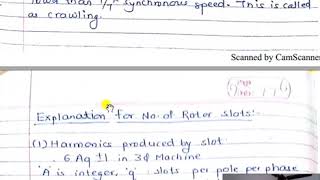 than 1/7th synchronous speed. This is called
as crawling.
Scanned by CamScanner
Explanation for No. of Rotor slots:-
(1) Harmonics produced by slot
6Aq ±1 in 3Φ Machine
'A' is integer, 'q' slots per pole per phase